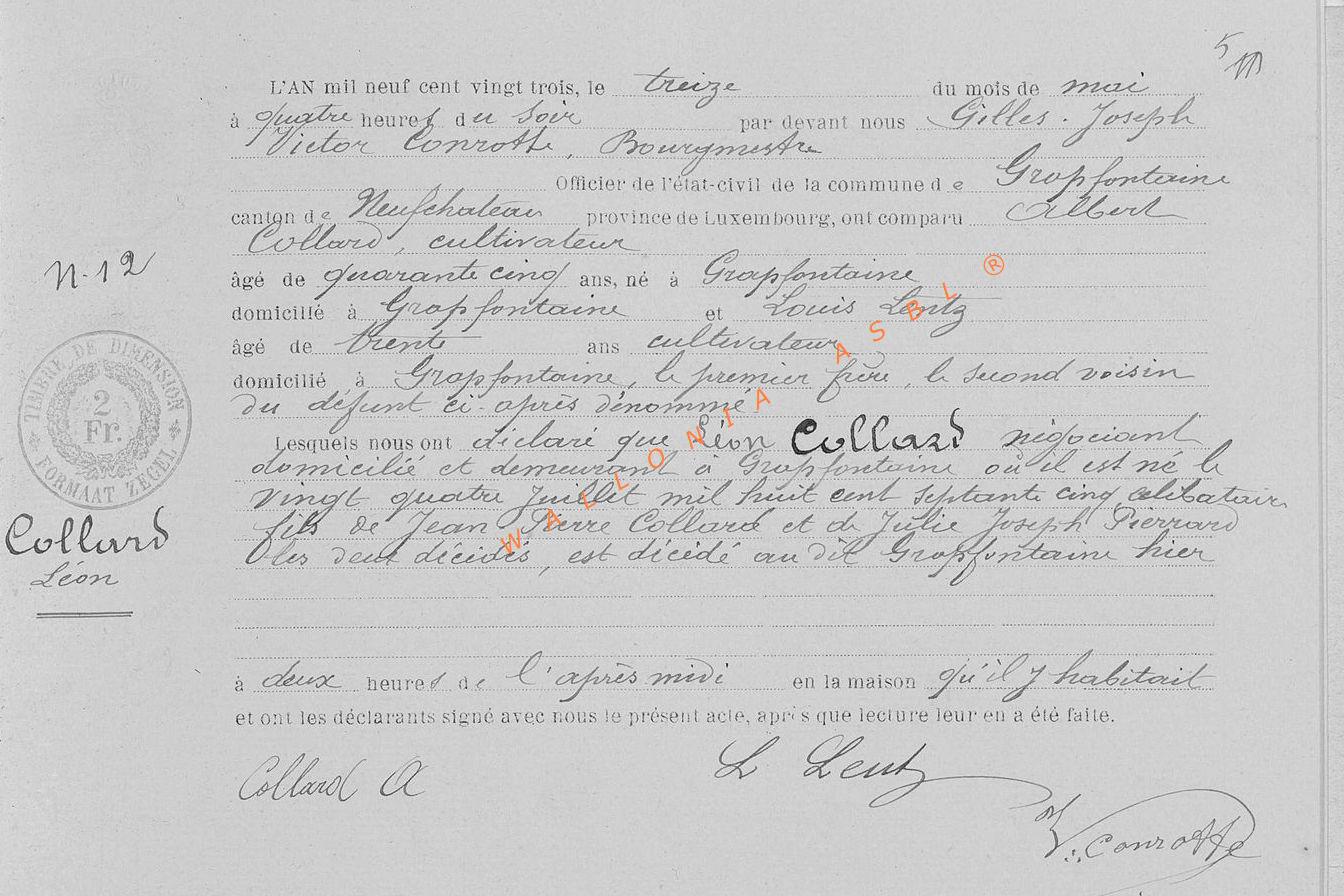 5
L'AN mil neuf cent vingt trois, le treize du mois de mai
à quatre heures du soir par devant nous Gilles. Joseph
Victor Conrotte, Bourgmestre
Officier de l'état-civil de la commune de Grapfontaine
canton de Neufchateau province de Luxembourg, ont comparu Albert
Collard, cultivateur
N. 12
âgé de quarante cinq ans, né à Grapfontaine
domicilié à Grapfontaine et Louis Lentz
âgé de trente ans cultivateur
domicilié à Grapfontaine, le premier frère, le second voisin
du défunt ci-après dénommé
Lesquels nous ont déclaré que Léon Collard négociant
domicilié et demeurant à Grapfontaine où il est né le
vingt quatre Juillet mil huit cent septante cinq célibataire
fils de Jean Pierre Collard et de Julie Joseph Pierrard
les deux décédés, est décédé au dit Grapfontaine hier
TIMBRE DE DIMENSION
2
Fr.
FORMAAT ZEGEL
Collard
Léon
à deux heures de l'après midi en la maison qu'il y habitait
et ont les déclarants signé avec nous le présent acte, après que lecture leur en a été faite.
Collard A
L Lentz
V. Conrotte
WALLONIA ASBL ®